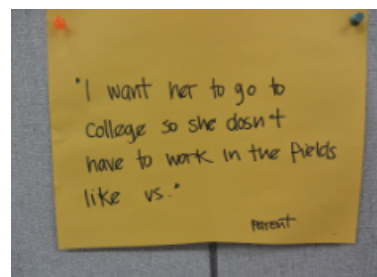 "I want her to go to
College so she dosn't
have to work in the fields
like us."
Parent